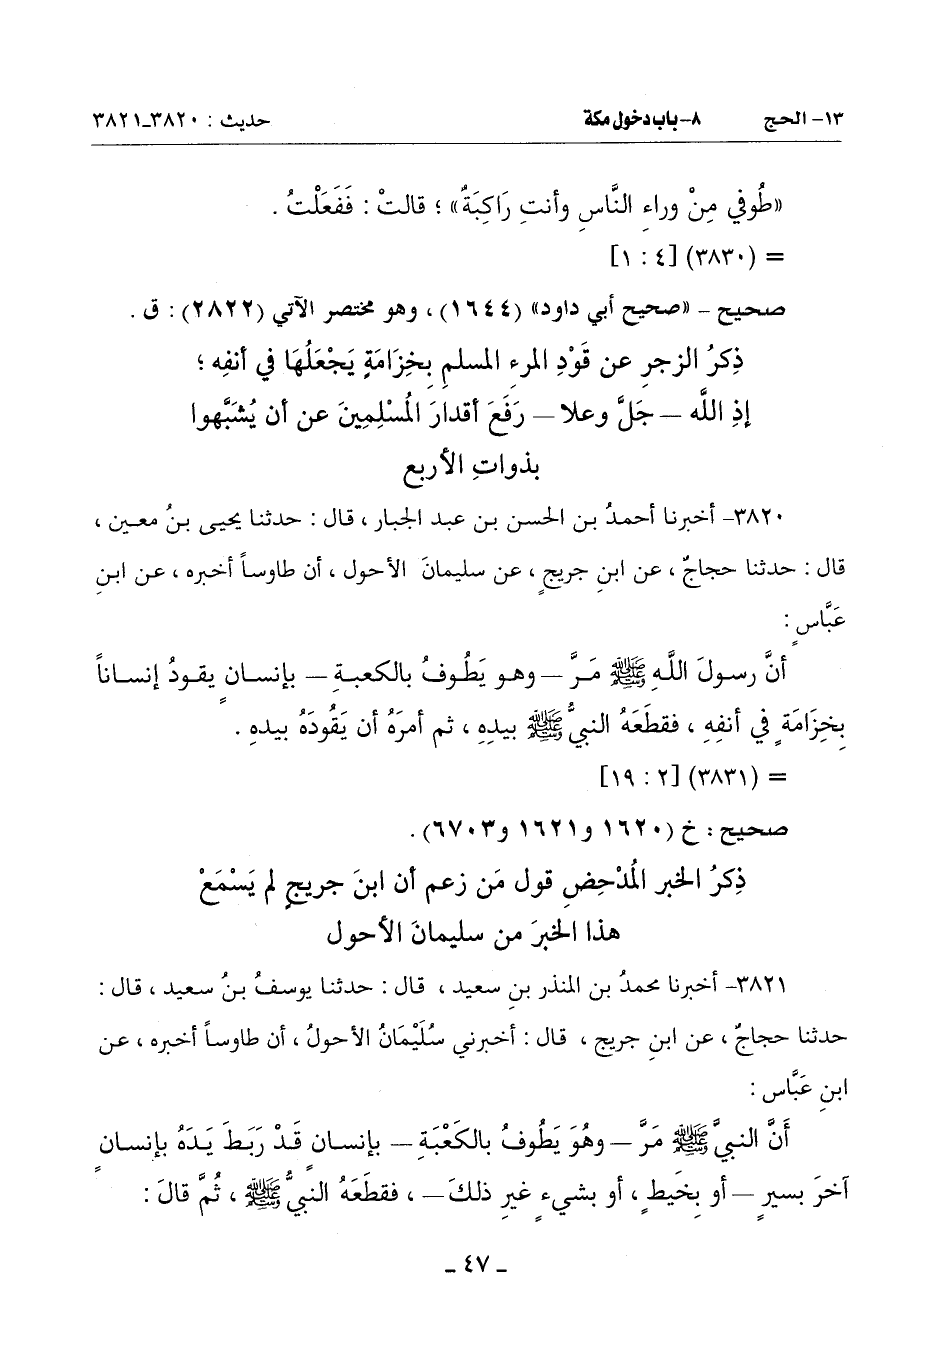 ١٣- الحج ٨- باب دخول مكة حديث : ٣٨٢٠-٣٨٢١
«طُوفي مِنْ وراءِ النَّاسِ وأنتِ رَاكِبَةٌ» ؛ قالتْ : فَفَعَلْتُ .
= (٣٨٣٠) [٤ : ١]
صحيح - «صحيح أبي داود» (١٦٤٤) ، وهو مختصر الآتي (٢٨٢٢) : ق .
ذِكرُ الزجرِ عن قَوْدِ المرءِ المسلمِ بِخِزَامَةٍ يَجْعَلُهَا في أنفِه ؛
إذِ اللَّه — جَلَّ وعلا — رَفَعَ أقدارَ المُسْلِمِينَ عن أن يُشَبَّهوا
بذواتِ الأربع
٣٨٢٠- أخبرنا أحمدُ بن الحسن بن عبد الجبار ، قال : حدثنا يحيى بنُ معين ،
قال : حدثنا حجاجٌ ، عن ابنِ جريجٍ ، عن سليمانَ الأحول ، أن طاوساً أخبره ، عن ابنِ
عَبَّاسٍ :
أنَّ رسولَ اللَّهِ ﷺ مَرَّ — وهو يَطُوفُ بالكعبةِ — بإنسانٍ يقودُ إنساناً
بِخِزَامَةٍ في أنفِهِ ، فقطَعَهُ النبيُّ ﷺ بيدِهِ ، ثم أمرَهُ أن يَقُودَهُ بيدِهِ .
= (٣٨٣١) [٢ : ١٩]
صحيح : خ (١٦٢٠ و١٦٢١ و٦٧٠٣) .
ذِكرُ الخبرِ المُدْحِضِ قول مَن زعم أن ابنَ جريجٍ لم يَسْمَعْ
هذا الخبرَ من سليمانَ الأحول
٣٨٢١- أخبرنا محمدُ بن المنذر بنِ سعيد ، قال : حدثنا يوسفُ بنُ سعيد ، قال :
حدثنا حجاجٌ ، عن ابنِ جريج ، قال : أخبرني سُلَيْمَانُ الأحولُ ، أن طاوساً أخبره ، عن
ابنِ عَبَّاس :
أَنَّ النبيَّ ﷺ مَرَّ — وهُوَ يَطُوفُ بالكَعْبَةِ — بإنسانٍ قَدْ رَبَطَ يَدَهُ بإنسانٍ
آخرَ بسيرٍ — أو بِخَيطٍ ، أو بشيءٍ غيرِ ذلكَ — ، فقطَعَهُ النبيُّ ﷺ ، ثُمَّ قالَ :
- ٤٧ -